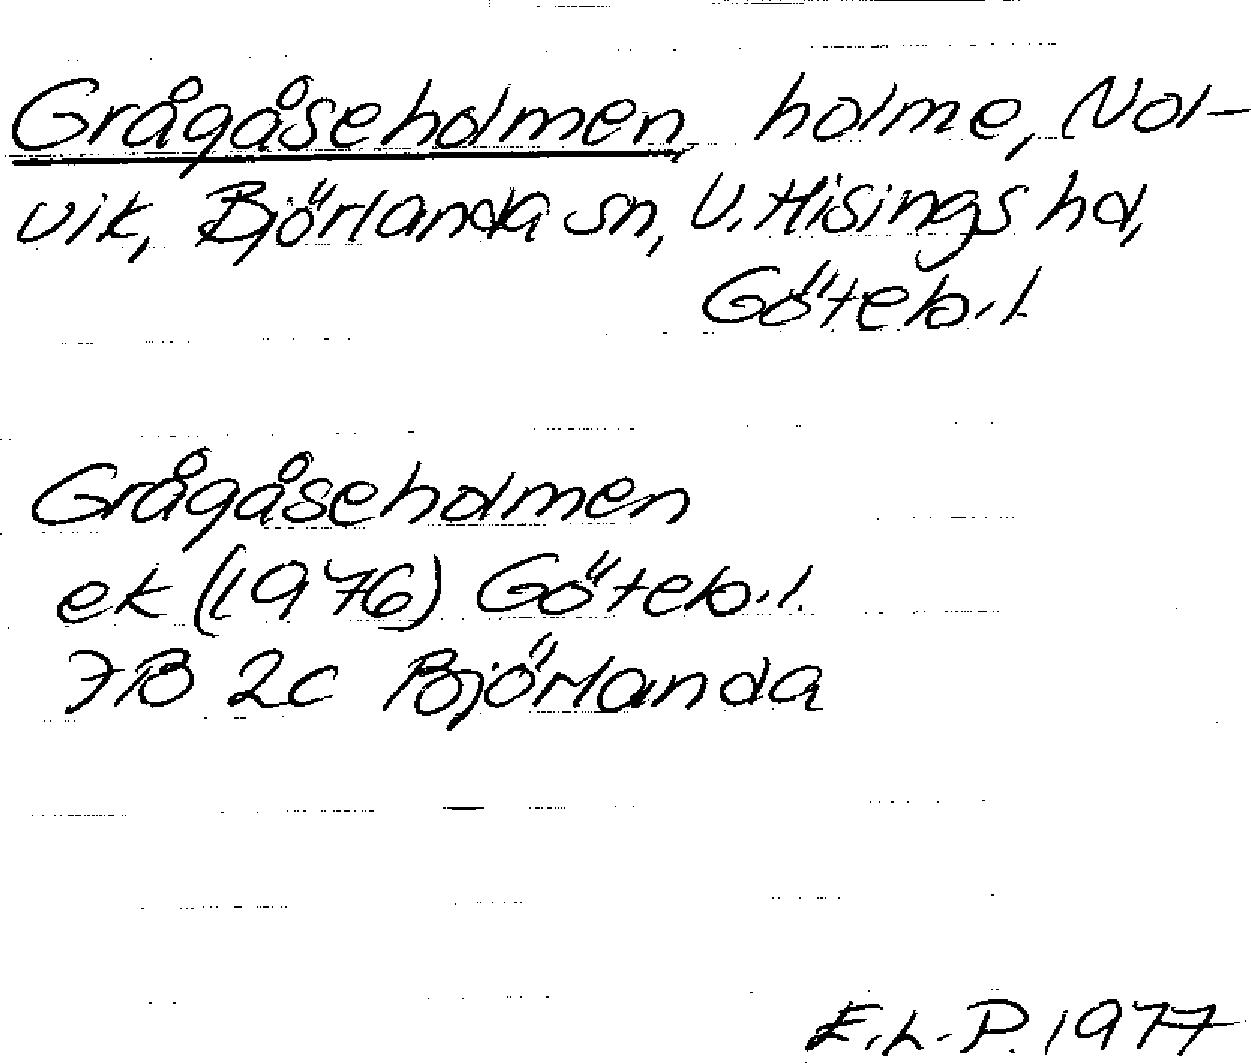 Grågåseholmen, holme, Nol-
vik, Björlanda sn, V. Hisings hd,
Göteb.l
Grågåseholmen
ek (1976) Göteb.l.
7B 2c Björlanda
E.L.P. 1977